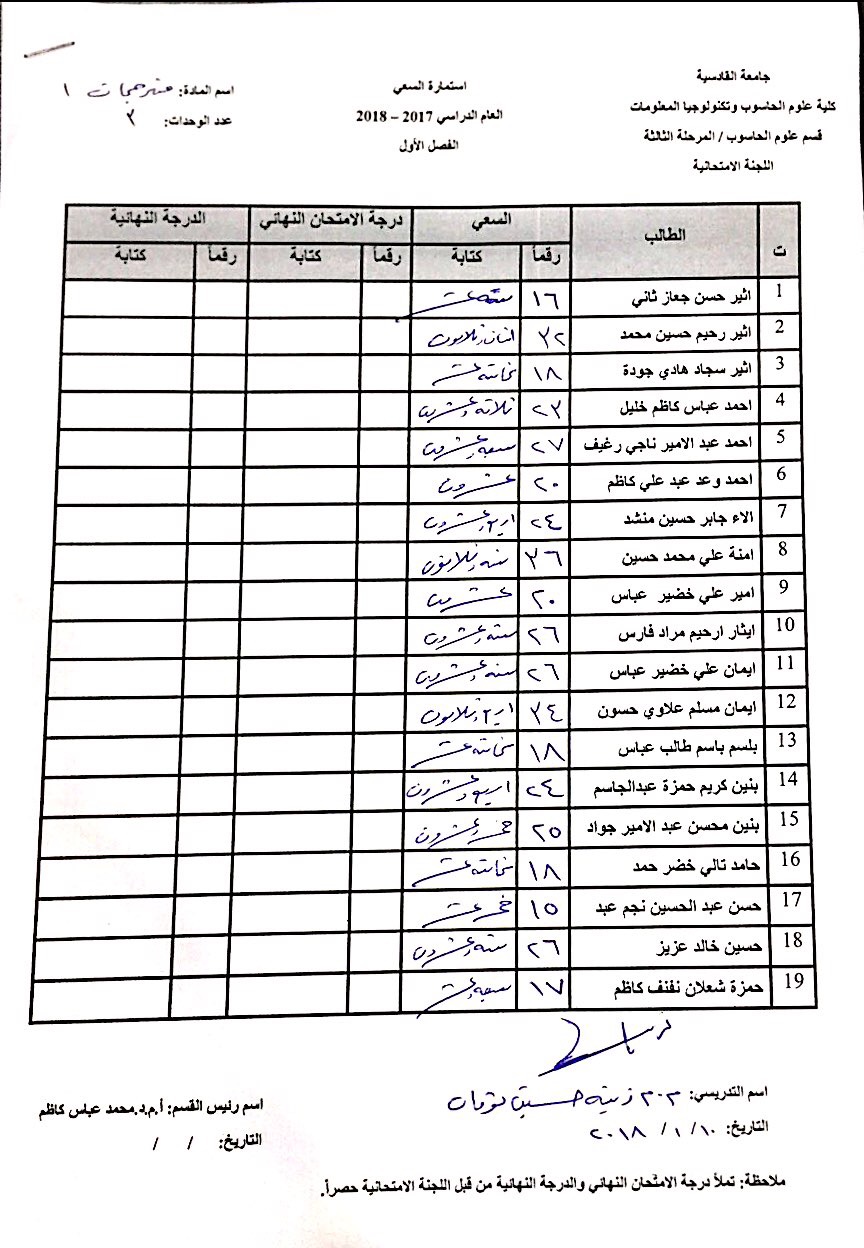 جامعة القادسية
كلية علوم الحاسوب وتكنولوجيا المعلومات
قسم علوم الحاسوب / المرحلة الثالثة
اللجنة الامتحانية
استمارة السعي
العام الدراسي 2017 – 2018
الفصل الأول
اسم المادة: مترجمات ١
عدد الوحدات: ٣
ت الطالب السعي درجة الامتحان النهائي الدرجة النهائية
رقماً كتابة رقماً كتابة رقماً كتابة
1 اثير حسن جعاز ثاني ١٦ ستة عشر
2 اثير رحيم حسين محمد ٣٢ اثنان وثلاثون
3 اثير سجاد هادي جودة ١٨ ثمانية عشر
4 احمد عباس كاظم خليل ٢٣ ثلاثة وعشرون
5 احمد عبد الامير ناجي رغيف ٢٧ سبعة وعشرون
6 احمد وعد عبد علي كاظم ٢٠ عشرون
7 الاء جابر حسين منشد ٢٤ اربع وعشرون
8 امنة علي محمد حسين ٣٦ ستة وثلاثون
9 امير علي خضير عباس ٢٠ عشرون
10 ايثار ارحيم مراد فارس ٢٦ ستة وعشرون
11 ايمان علي خضير عباس ٢٦ ستة وعشرون
12 ايمان مسلم علاوي حسون ٣٤ اربع وثلاثون
13 بلسم باسم طالب عباس ١٨ ثمانية عشر
14 بنين كريم حمزة عبدالجاسم ٢٤ اربع وعشرون
15 بنين محسن عبد الامير جواد ٢٥ خمس وعشرون
16 حامد تالي خضر حمد ١٨ ثمانية عشر
17 حسن عبد الحسين نجم عبد ١٥ خمس عشر
18 حسين خالد عزيز ٢٦ ستة وعشرون
19 حمزة شعلان نفنف كاظم ١٧ سبعة عشر
اسم التدريسي: م.م زينه حسين
التاريخ: ١٠/ ١ / ٢٠١٨
اسم رئيس القسم: أ.م.د.محمد عباس كاظم
التاريخ: / /
ملاحظة: تملأ درجة الامتحان النهائي والدرجة النهائية من قبل اللجنة الامتحانية حصراً.